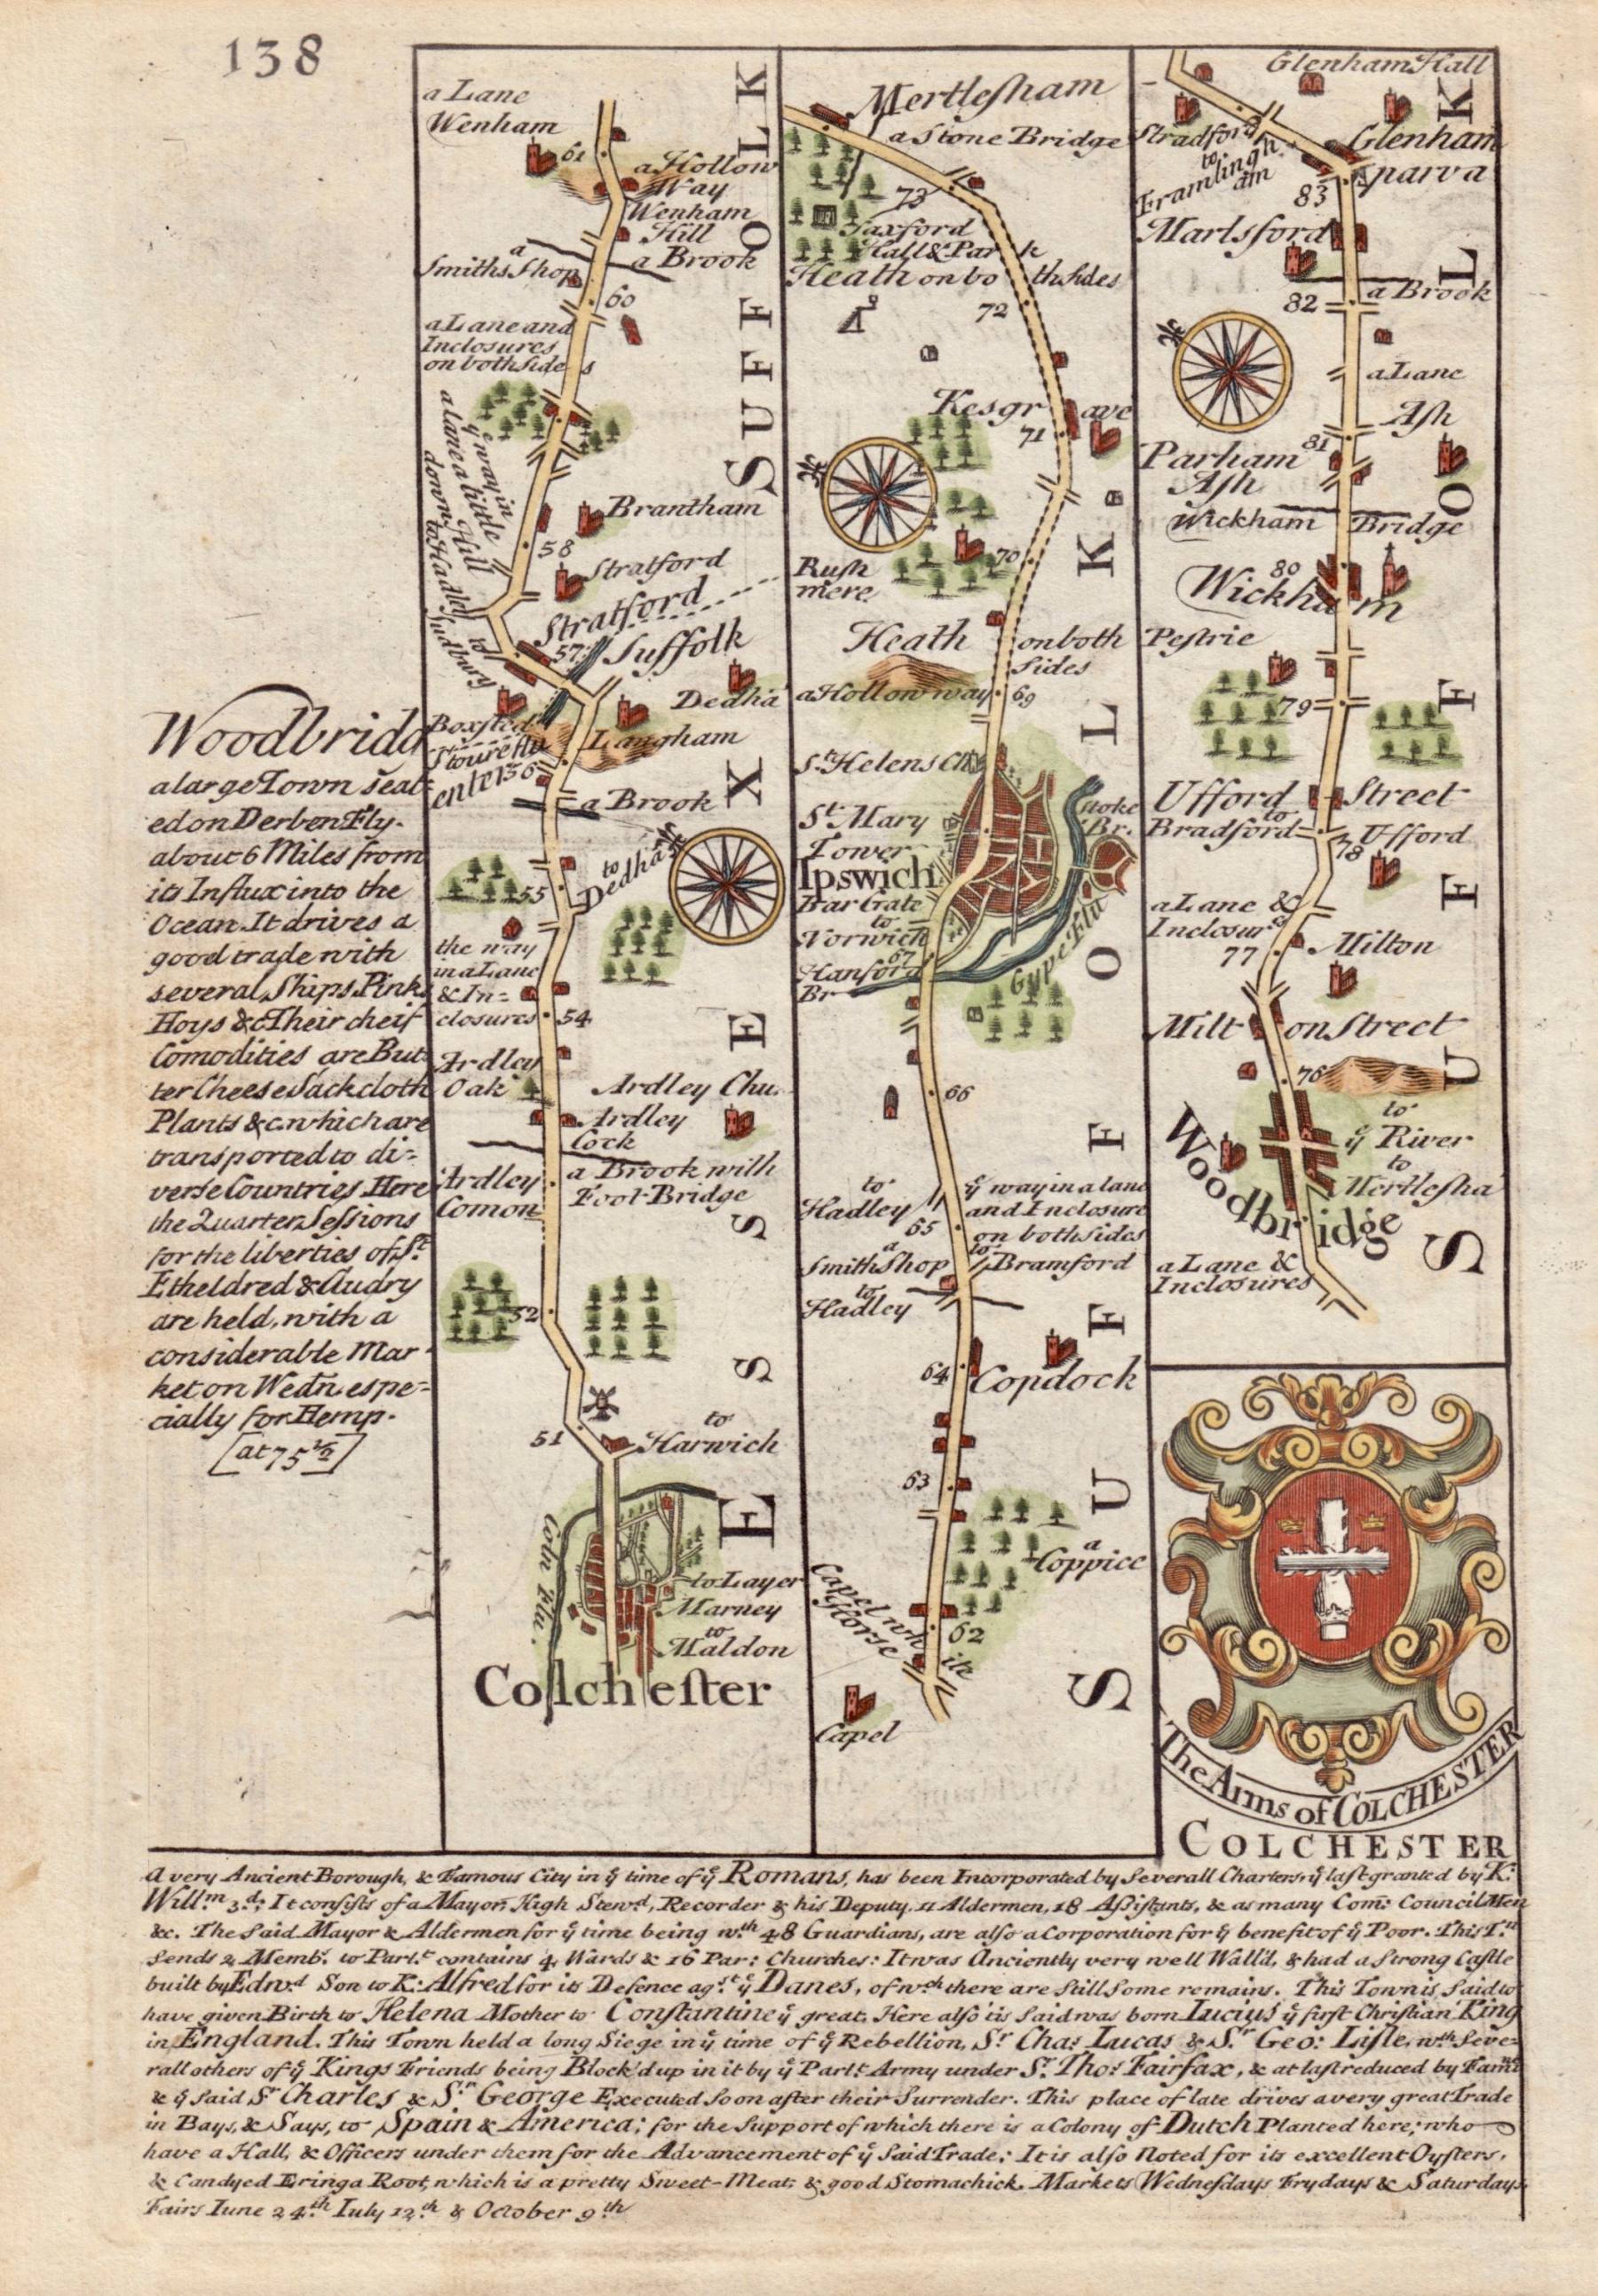 138
Woodbridg
a large Town seat
ed on Derben Flu.
about 6 Miles from
its Influx into the
Ocean. It drives a
good trade with
several Ships Pinks
Hoys &c Their cheif
Comodities are But
ter Cheese Sackcloth
Plants &c. which are
transported to di=
verse Countries Here
the Quarter Sessions
for the liberties of St
Etheldred & Audry
are held, with a
considerable Mar
ket on Wedn espe=
cially for Hemp.
[at 75 1/2]
a Lane
Wenham
61
a Hollow
Way
Wenham
Hill
a Brook
a
Smiths Shop
60
a Lane and
Inclosures
on both Sides
ye way in
a lane a little
down Hill
to Hadley
Brantham
58
Stratford
Stratford
57
Suffolk
to
Sudbury
Dedha
Boxsted
Langham
Stoure flu
enter 56
a Brook
to
Dedha
55
the way
in a Lane
& In=
closures
54
Ardley
Oak
Ardley Chu.
Ardley
Cock
Ardley
Comon
a Brook with
Foot Bridge
52
51
to
Harwich
Coln Flu.
to Layer
Marney
to
Maldon
Colchester
SUFFOLK
ESSEX
Mertlesham
a Stone Bridge
73
Faxford
Hall & Park
Heath on both Sides
72
Kesgrave
71
70
Rush
mere
Heath on both
Sides
a Hollow way
69
St Helens Ch
St Mary
Tower
Stoke
Br.
Ipswich
Bar Gate
to
Norwich
67
Hanford
Br
Gype Flu
66
to
Hadley
ye way in a lane
and Inclosure
on both sides
65
a
Smiths Shop
to
Bramford
to
Hadley
64
Copdock
63
a
Coppice
Capel white
Horse
62
Capel
SUFFOLK
Glenham Hall
Stradford
to
Framlingh
am
Glenham
parva
83
Marlsford
a Brook
82
a Lane
Ash
81
Parham
Ash
Wickham Bridge
80
Wickham
Pestrie
79
Ufford Street
to
Bradford
Ufford
78
a Lane &
Inclosurs
77
Milton
Milton Street
76
to
ye River
to
Mertlesha
Woodbridge
a Lane &
Inclosures
SUFFOLK
The Arms of COLCHESTER
COLCHESTER
A very Ancient Borough, & Famous City in ye time of ye Romans, has been Incorporated by Severall Charters, ye last granted by K:
Willm 3d; It consists of a Mayor, High Stewd, Recorder & his Deputy, 11 Aldermen, 18 Assistants, & as many Com: Council Men
&c. The Said Mayor & Aldermen for ye time being wth 48 Guardians, are also a Corporation for ye benefit of ye Poor. This Tn
Sends 2 Memb. to Parlt contains 4 Wards & 16 Par: Churches: It was Anciently very well Wall'd, & had a Strong Castle
built by Edwd Son to K: Alfred for its Defence agst ye Danes, of wch there are Still Some remains. This Town is Said to
have given Birth to Helena Mother to Constantine ye great, Here also 'tis Said was born Lucius ye first Christian King
in England. This Town held a long Siege in ye time of ye Rebellion, Sr Cha: Lucas & Sr Geo: Lisle, wth Seve=
rall others of ye Kings Friends being Block'd up in it by ye Parlt Army under Sr Tho: Fairfax, & at last reduced by Famn
& ye Said Sr Charles & Sr George Executed Soon after their Surrender. This place of late drives a very great Trade
in Bays, & Says, to Spain & America; for the Support of which there is a Colony of Dutch Planted here; who
have a Hall, & Officers under them for the Advancement of ye Said Trade: It is also Noted for its excellent Oysters,
& Candyed Eringa Root, which is a pretty Sweet-Meat & good Stomachick. Markets Wednesdays Frydays & Saturdays,
Fairs Iune 24th Iuly 12th & October 9th